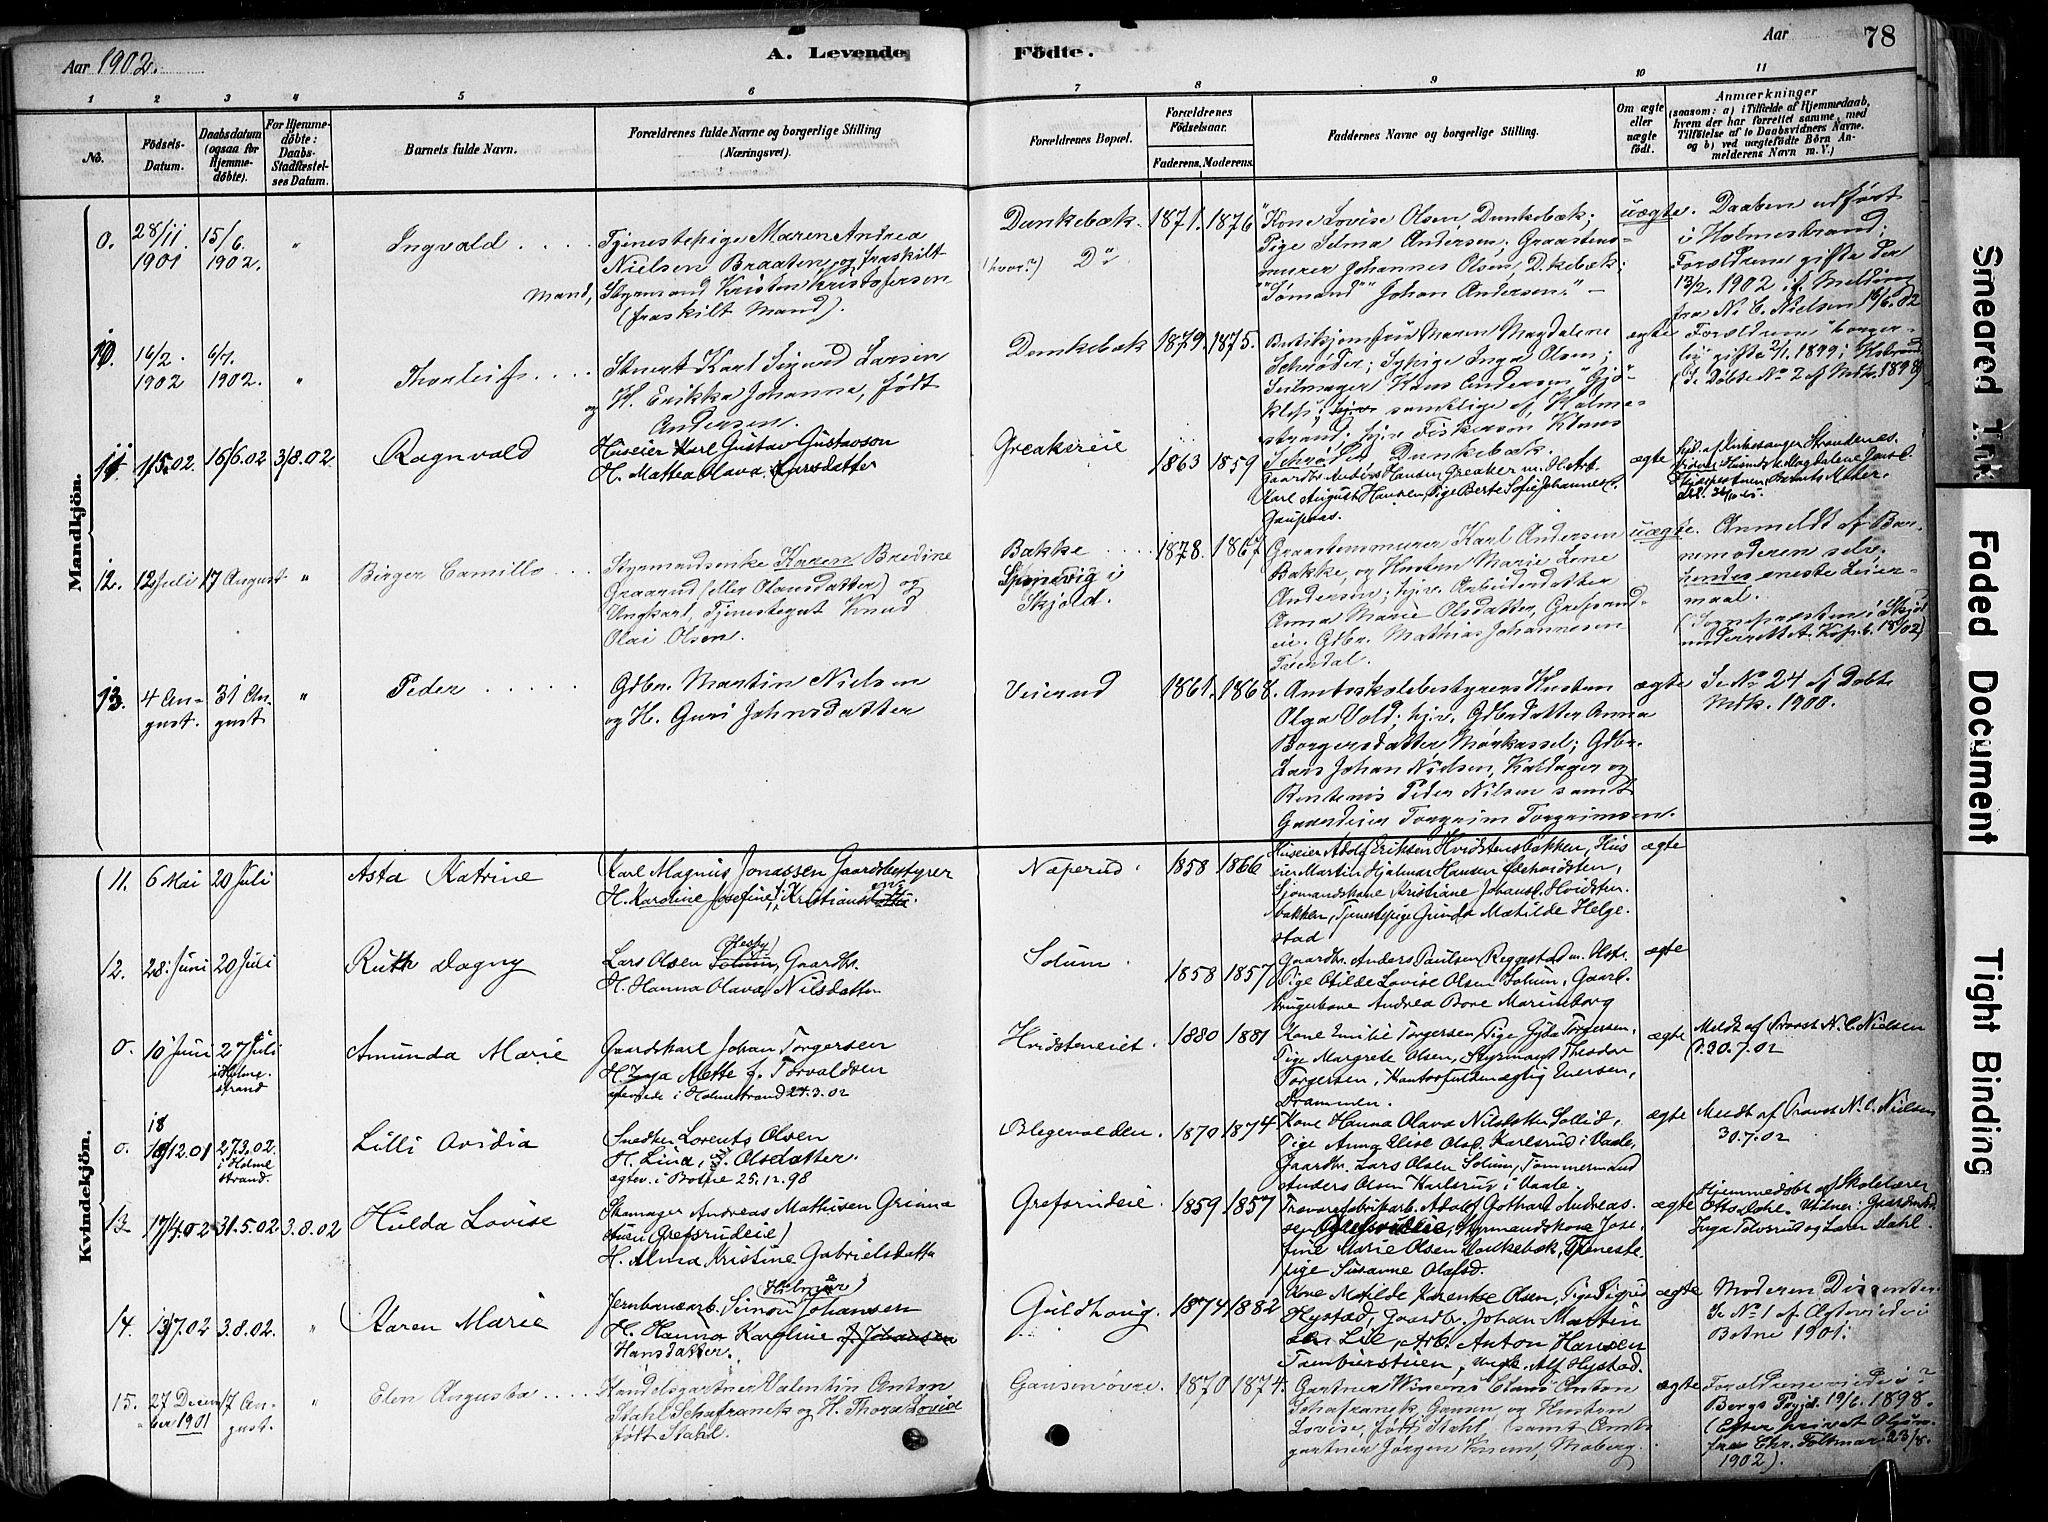 Aar 1902.
A. Levende
Födte.
Aar
78
1 2 3 4 5 6 7 8 9 10 11
No.
Födsels-
Datum.
Daabsdatum
(ogsaa for
Hjemme-
döbte).
For Hjemme-
döbte:
Daabs-
Stadfæstel-
ses Datum.
Barnets fulde Navn.
Forældrenes fulde Navne og borgerlige Stilling
(Næringsvei).
Forældrenes Bopæl.
Forældrenes
Födselsaar.
Faderens. Moderens.
Faddernes Navne og borgerlige Stilling.
Om ægte
eller
uægte
födt.
Anmærkninger
(saasom: a) i Tilfælde af Hjemmedaab,
hvem der har forrettet samme, med
Tilföielse af to Daabsvidners Navne,
og b) ved uægtefödte Börn An-
melderens Navn m. V.)
Mandkjön.
0.
28/11
1901
15/6.
1902.
"
Ingvald
Tjenestepige Maren Andrea
Nielsen Braaten og fraskilt
Mand, Styrmand Kristen Kristofersen
(fraskilt Mand).
Dunkebæk.
(hvor?) Do
1871. 1876
Kone Lovise Olsen, Dunkebæk;
Pige Selma Andersen; Graastens-
murer Johannes Olsen, D.kebæk;
"Sømand" Johan Andersen."
uægte.
Daaben udført
i Holmestrand;
Forældrene gifte der
13/2. 1902 if. Melding
fra N. C. Nielsen 16/6.02
10.
16/2.
1902
6/7.
1902.
"
Thorleif
Stuert Karl Sigurd Larsen
og H. Erikka Johanna, født
Andersen.
Dunkebæk
1879. 1875.
Butikjomfru Maren Magdalene
Schrøder; Sypige Inga Olsen;
Seilmager Hans Andersen, "Gjø-
klep", samtlige af Holme-
strand; hjv. Fiskersøn Klaus
Schrøder Dunkebæk.
ægte
Forældrene borger-
lig gifte 2/1. 1899 i Hstrand
(Se Døbte No 2 af Mdk. 1898)
11.
1/5.02.
16/6.02
3/8.02
Ragnvald
Huseier Karl Gustav Gustavson
H. Mathea Olava Larsdatter
Greakereie
1863 1859
Gaardbr. Anders Hansen Greaker m. Hstr.
Karl August Hansen, Pige Berte Sofie Johannesd.
Gaupaas.
ægte
12.
12 Juli
17 August
"
Birger Camillo
Styrmandsenke Karen Bredine
Graarud (eller Olausdatter) og
Ungkarl, Tjenestegut Knud
Olai Olsen.
Bakke
Spinnevig i
Skjold.
1878. 1867
Graastensmurer Karl Andersen
Bakke, og Hustru Marie Lene
Andersen; hjv. Arbeiderdatter
Anna Marie Olsdatter, Grefsrud-
eie; Gdbr. Mathias Johannesen
uægte.
Anmeldt af Bar-
nemoderen selv.
Hendes eneste Leier-
maal.
(Sognepræsten i Skjold
underrettet
13.
4 Au-
gust.
31 Au-
gust
"
Peder
Gdbr. Martin Nielsen
og H. Guri Johnsdatter
Veierud
1861. 1868.
Amtsskolebestyrers Hustru
Olga Vold; hjv. Gdbrdatter Anna
Borgersdatter Mørkassel; Gdbr.
Lars Johan Nielsen, Kaldager og
Rentenis Peder Nilsen samt
Gaardeier Torgrim Torgrimsen.
ægte
Se No 24 af Døbte
Mdk. 1900.
Kvindekjön.
11.
6 Mai
20 Juli
Asta Katrine
Karl Magnus Jonassen Gaardbestyrer
H. Karoline Josefine f. Kristiansen
Næperud
1858 1866
Huseier Adolf Eriksen Hvidstensbakken, Hus
eier Martin Hjalmar Hansen Ødehvidsten,
Sjømandskone Kristiane Johansd. Hvidsten
bakken, Tjenestepige Gunda Matilde Helge-
stad
ægte
12.
28. Juni
20 Juli
Ruth Dagny
Lars Olsen Solum, Gaardbr.
H. Hanna Olava Nilsdatter
Solum
1858 1857
Gaardbr. Anders Paulsen Reggestad m. Hstr.
Pige Otilde Lovise Olsen Solum, Gaard-
brugerkone Andrea Bove Marienborg
ægte
0.
10 Juni
27 Juli
i Holme-
strand
Amunda Marie
Gaardskarl Johan Torgersen
H. Inga Mette f. Torvaldsen
egtevede i Holmestrand 27.3.02
Hvidsteneiet.
1880 1881
Kone Emilie Torgersen, Pige Gyda Torgersen,
Pige Margrete Olsen, Styrmand Theodor
Torgersen, Kontorfuldmægtig Iversen,
Drammen.
ægte
Meldt af Provst N. C. Nielsen
d. 30.7.02
0.
18/12.01
27.3.02.
i Holme
strand.
Lilli Ovidia
Snedker Lorents Olsen
H. Lina, f. Olsdatter.
egtev. i Botne 25.12.98
Blegevolden.
1870 1874
Kone Hanna Olava Nilsdatter Sollid,
Pige Anna Elise Olsd. Karlsrud i Vaale,
Gaardbr. Lars Olsen Solum, Tømmermand
Anders Olsen Karlsrud i Vaale.
ægte
Meldt af Provst N. C. Nielsen
30.7.02
13.
17/4.02
31.5.02
3.8.02
Hulda Lovise
Skomager Andreas Mathisen Grimm
stuen Grefsrudeie)
H. Alma Kristine Gabrielsdatter
Grefsrudeie
1859 1857
Trævarefabrikarb. Adolf Gothard Andreas-
sen Grefsrudeie, Styrmandskone Jose-
fine Marie Olsen Dunkebæk, Tjeneste-
pige Susanne Olafsd.
ægte
Hjemmedøbt af Skolelærer
14.
13/7.02
3.8.02.
"
Karen Marie
Jernbanearb. Simon Johansen
H. Hanna Karoline f. Johansen
Hansdatter.
Guldhaug.
1874 1882
Kone Matilde Lorentse Olsen, Pige Sigrid
Hystad, Gaardbr. Johan Martin
Lie, Arb. Anton Hansen
Tambursteien, Ungk. Alf Hystad.
ægte
Moderen Dissenter.
Se No 1 af Ægteviede i
Botne 1901.
15.
27 Decem-
ber 1901
17 Au-
gust.
"
Elen Augusta
Handelsgartner Valentin Anton
Stahl Schafranek og H. Thora Lovise
født Stahl.
Gausen øvre.
1870 1874.
Gartner Winsens Claus Anton
Schafranek, Gausen og Hustru
Lovise, født Stahl, samt Amts-
gartner Jørgen Knem, Moberg.
ægte
Forældrene viede i?
Bergs Prgjd. 19/6. 1898.
(Efter privat Oplysn.
fra Chr. Foltmar 23/8.
1902).
Smeared Ink
Faded Document
Tight Binding